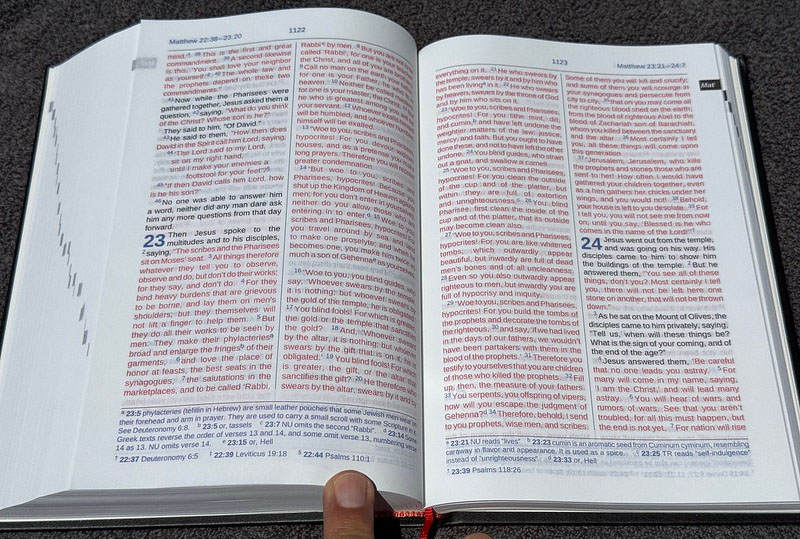 Matthew 22:38—23:20
1122
mind.’ 38 This is the first and great
commandment. 39 A second likewise
is this, ‘You shall love your neighbor
as yourself.’ 40 The whole law and
the prophets depend on these two
commandments.”
41 Now while the Pharisees were
gathered together, Jesus asked them a
question, 42 saying, “What do you think
of the Christ? Whose son is he?”
They said to him, “Of David.”
43 He said to them, “How then does
David in the Spirit call him Lord, saying,
44 ‘The Lord said to my Lord,
sit on my right hand,
until I make your enemies a
footstool for your feet’?
45 “If then David calls him Lord, how
is he his son?”
46 No one was able to answer him
a word, neither did any man dare ask
him any more questions from that day
forward.
23 Then Jesus spoke to the
multitudes and to his disciples,
2 saying, “The scribes and the Pharisees
sit on Moses’ seat. 3 All things therefore
whatever they tell you to observe,
observe and do, but don’t do their works;
for they say, and don’t do. 4 For they
bind heavy burdens that are grievous
to be borne, and lay them on men’s
shoulders; but they themselves will
not lift a finger to help them. 5 But
they do all their works to be seen by
men. They make their phylacteries
broad and enlarge the fringes of their
garments, 6 and love the place of
honor at feasts, the best seats in the
synagogues, 7 the salutations in the
marketplaces, and to be called ‘Rabbi,
Rabbi’ by men. 8 But you are not
called ‘Rabbi’, for one is your
the Christ, and all of you
9 Call no man on the earth your
for one is your Father, he who
heaven. 10 Neither be called
for one is your master, the Christ.
he who is greatest among you
your servant. 12 Whoever
will be humbled, and whoever
himself will be exalted.
13 “Woe to you, scribes and
hypocrites! For you devour
houses, and as a pretense you
long prayers. Therefore you will
greater condemnation.
14 “But woe to you, scribes and
Pharisees, hypocrites! Because you
shut up the Kingdom of Heaven against
men; for you don’t enter in yourselves,
neither do you allow those who are
entering in to enter. 15 Woe to you,
scribes and Pharisees, hypocrites! For
you travel around by sea and land
to make one proselyte; and when he
becomes one, you make him twice as
much a son of Gehenna as yourselves.
16 “Woe to you, you blind guides, who
say, ‘Whoever swears by the temple,
it is nothing; but whoever swears by
the gold of the temple, he is obligated.’
17 You blind fools! For which is greater,
the gold or the temple that sanctifies
the gold? 18 And, ‘Whoever swears
by the altar, it is nothing; but whoever
swears by the gift that is on it, he is
obligated.’ 19 You blind fools! For which
is greater, the gift, or the altar that
sanctifies the gift? 20 He therefore who
swears by the altar, swears by it and
a 23:5 phylacteries (tefillin in Hebrew) are small leather pouches that some Jewish men wear on
their forehead and arm in prayer. They are used to carry a small scroll with some Scripture in it.
See Deuteronomy 6:8. b 23:5 or, tassels c 23:7 NU omits the second “Rabbi”. d 23:14 Some
Greek texts reverse the order of verses 13 and 14, and some omit verse 13, numbering verse
14 as 13. NU omits verse 14. e 23:15 or, Hell
† 22:37 Deuteronomy 6:5 ‡ 22:39 Leviticus 19:18 § 22:44 Psalms 110:1
1123
Matthew 23:21—24:7
everything on it. 21 He who swears by
the temple, swears by it and by him who
has been living in it. 22 He who swears
by heaven, swears by the throne of God
and by him who sits on it.
23 “Woe to you, scribes and Pharisees,
hypocrites! For you tithe mint, dill,
and cumin, and have left undone the
weightier matters of the law: justice,
mercy, and faith. But you ought to have
done these, and not to have left the other
undone. 24 You blind guides, who strain
out a gnat, and swallow a camel!
25 “Woe to you, scribes and Pharisees,
hypocrites! For you clean the outside
of the cup and of the platter, but
within they are full of extortion
and unrighteousness. 26 You blind
Pharisee, first clean the inside of the
cup and of the platter, that its outside
may become clean also.
27 “Woe to you, scribes and Pharisees,
hypocrites! For you are like whitened
tombs, which outwardly appear
beautiful, but inwardly are full of dead
men’s bones and of all uncleanness.
28 Even so you also outwardly appear
righteous to men, but inwardly you are
full of hypocrisy and iniquity.
29 “Woe to you, scribes and Pharisees,
hypocrites! For you build the tombs of
the prophets and decorate the tombs of
the righteous, 30 and say, ‘If we had lived
in the days of our fathers, we wouldn’t
have been partakers with them in the
blood of the prophets.’ 31 Therefore you
testify to yourselves that you are children
of those who killed the prophets. 32 Fill
up, then, the measure of your fathers.
33 You serpents, you offspring of vipers,
how will you escape the judgment of
Gehenna? 34 Therefore, behold, I send
to you prophets, wise men, and scribes.
Some of them you will kill and crucify;
and some of them you will scourge in
your synagogues and persecute from
city to city, 35 that on you may come all
the righteous blood shed on the earth,
from the blood of righteous Abel to the
blood of Zachariah son of Barachiah,
whom you killed between the sanctuary
and the altar. 36 Most certainly I tell
you, all these things will come upon
this generation.
37 “Jerusalem, Jerusalem, who kills
the prophets and stones those who are
sent to her! How often I would have
gathered your children together, even
as a hen gathers her chicks under her
wings, and you would not! 38 Behold,
your house is left to you desolate. 39 For
I tell you, you will not see me from now
on, until you say, ‘Blessed is he who
comes in the name of the Lord!’”
24 Jesus went out from the temple,
and was going on his way. His
disciples came to him to show him
the buildings of the temple. 2 But he
answered them, “You see all of these
things, don’t you? Most certainly I tell
you, there will not be left here one
stone on another, that will not be thrown
down.”
3 As he sat on the Mount of Olives, the
disciples came to him privately, saying,
“Tell us, when will these things be?
What is the sign of your coming, and of
the end of the age?”
4 Jesus answered them, “Be careful
that no one leads you astray. 5 For
many will come in my name, saying,
‘I am the Christ,’ and will lead many
astray. 6 You will hear of wars and
rumors of wars. See that you aren’t
troubled, for all this must happen, but
the end is not yet. 7 For nation will rise
a 23:21 NU reads “lives” b 23:23 cumin is an aromatic seed from Cuminum cyminum, resembling
caraway in flavor and appearance. It is used as a spice. c 23:25 TR reads “self-indulgence”
instead of “unrighteousness” d 23:33 or, Hell
† 23:39 Psalms 118:26
Mat